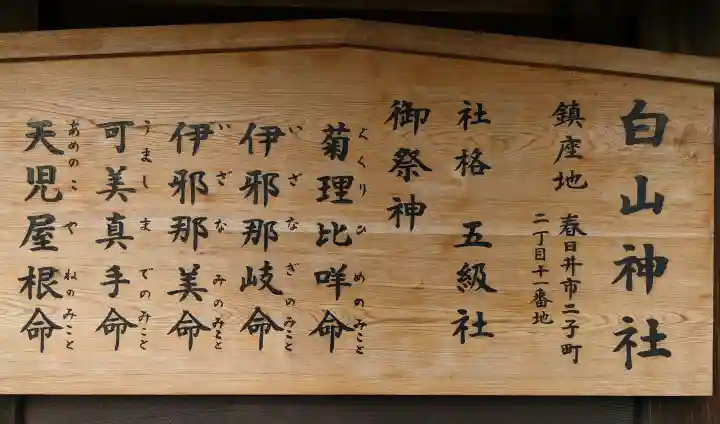 白山神社
鎮座地
春日井市二子町
二丁目十一番地
社格 五級社
御祭神
菊理比咩命
くくりひめのみこと
伊邪那岐命
いざなぎのみこと
伊邪那美命
いざなみのみこと
可美真手命
うましまでのみこと
天児屋根命
あめのこやねのみこと